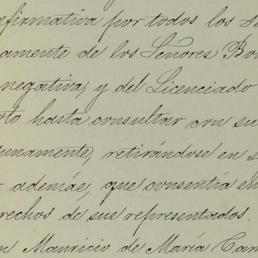 afirmativa por todos los S
amente de los Señores Bo
negativa, y del Licenciado
to hasta consultar con su
tunamente, retirándose en s
además, que consentía en
rechos de sus representados.
n Mauricio de María Cam